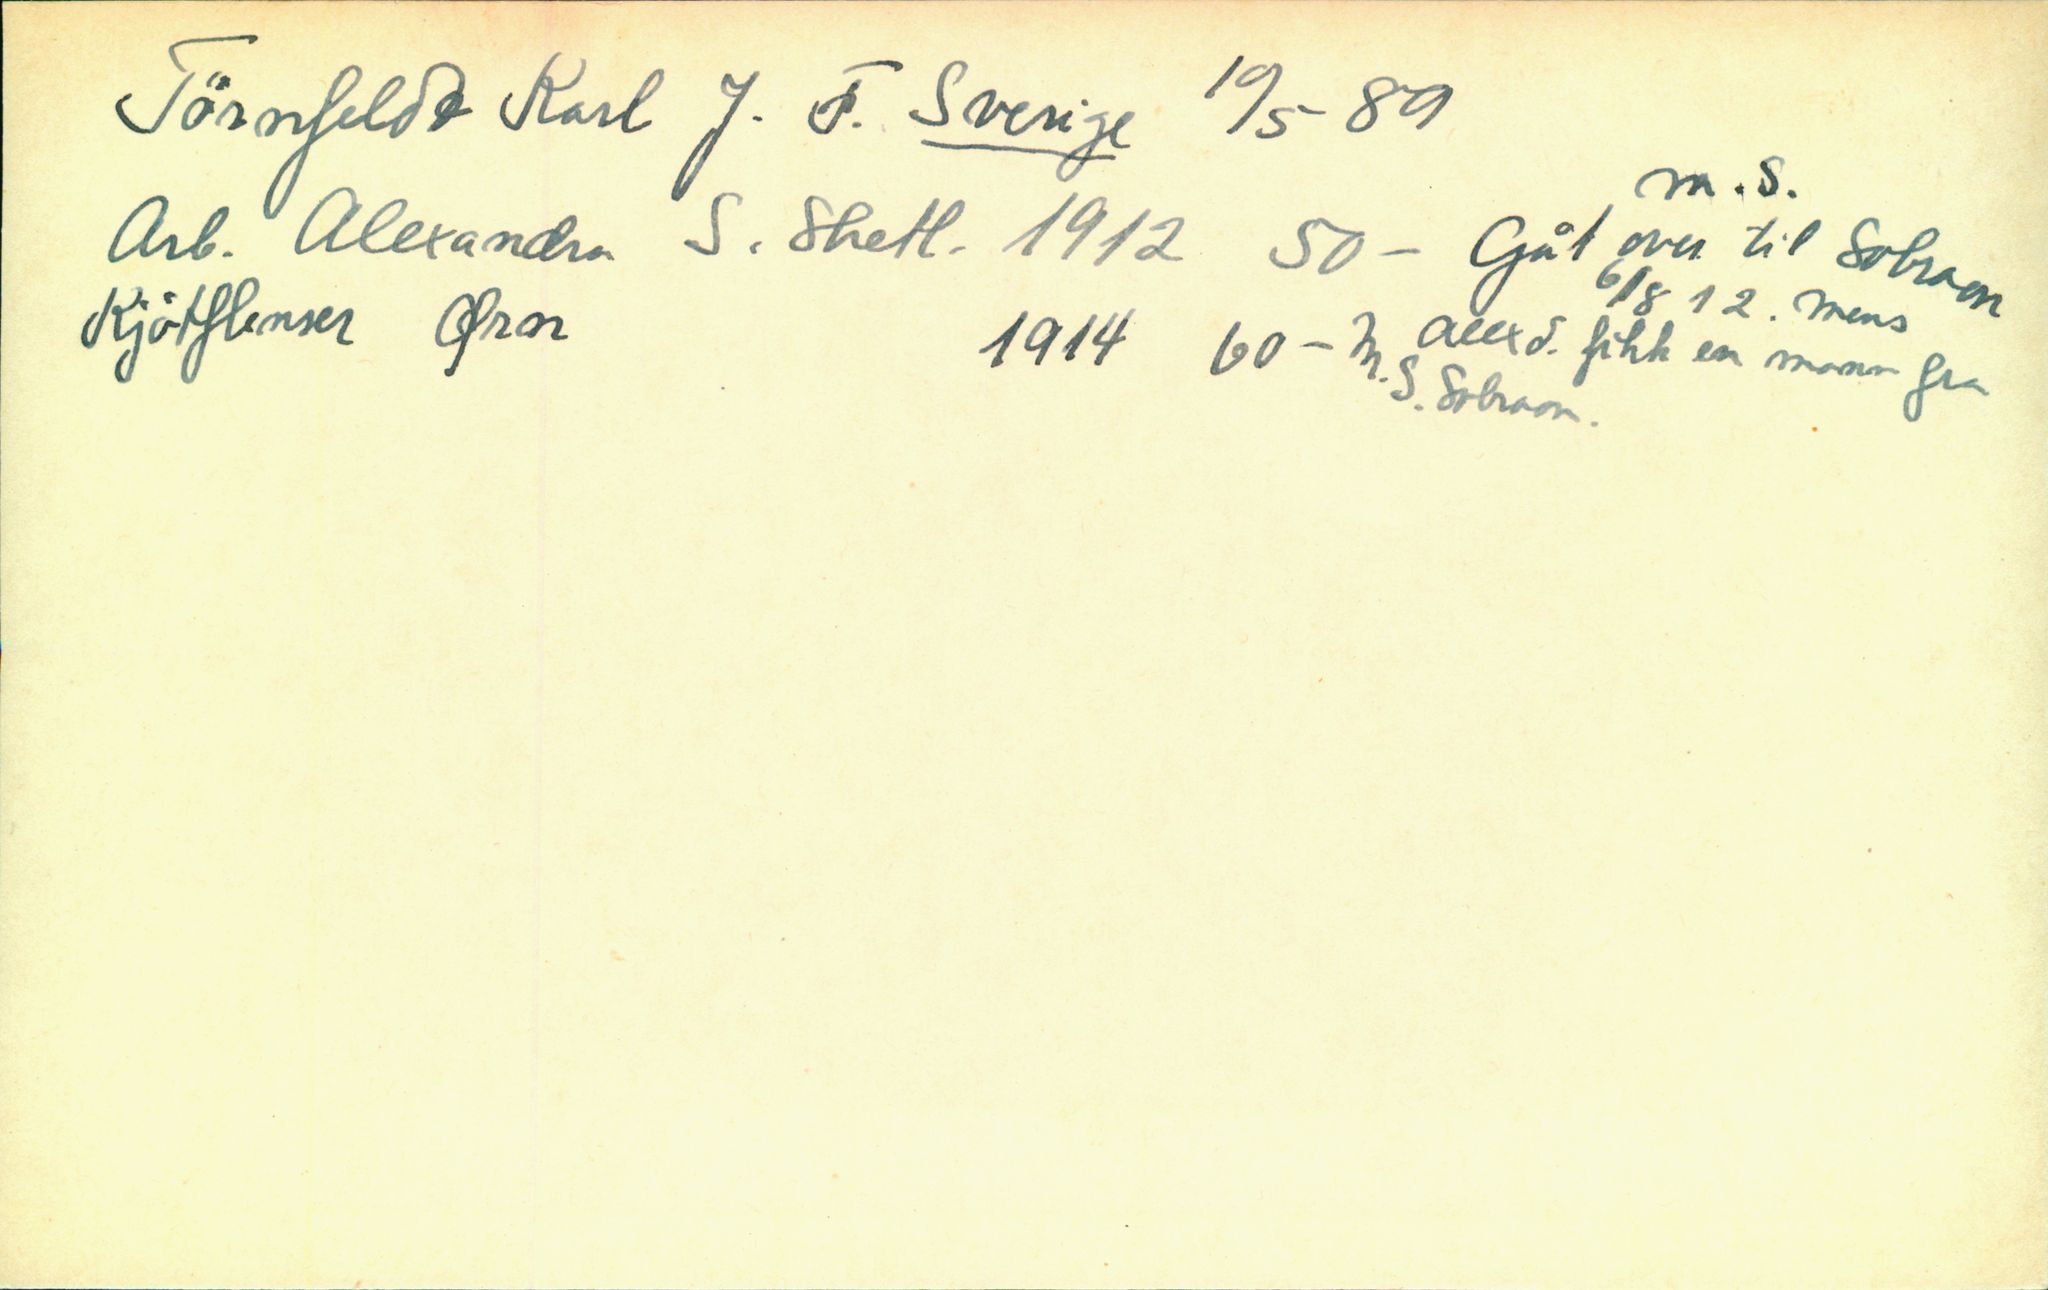 Törnfeldt Karl J. F. Sverige 19/5-89
Arb. Alexandra S. Shetl. 1912 50- Gåt over til m.S. Sobraon
6/8 12. mens
Kjötflenser Ørn 1914 60- Alexd. fikk en mann fra
M.S. Sobraon.